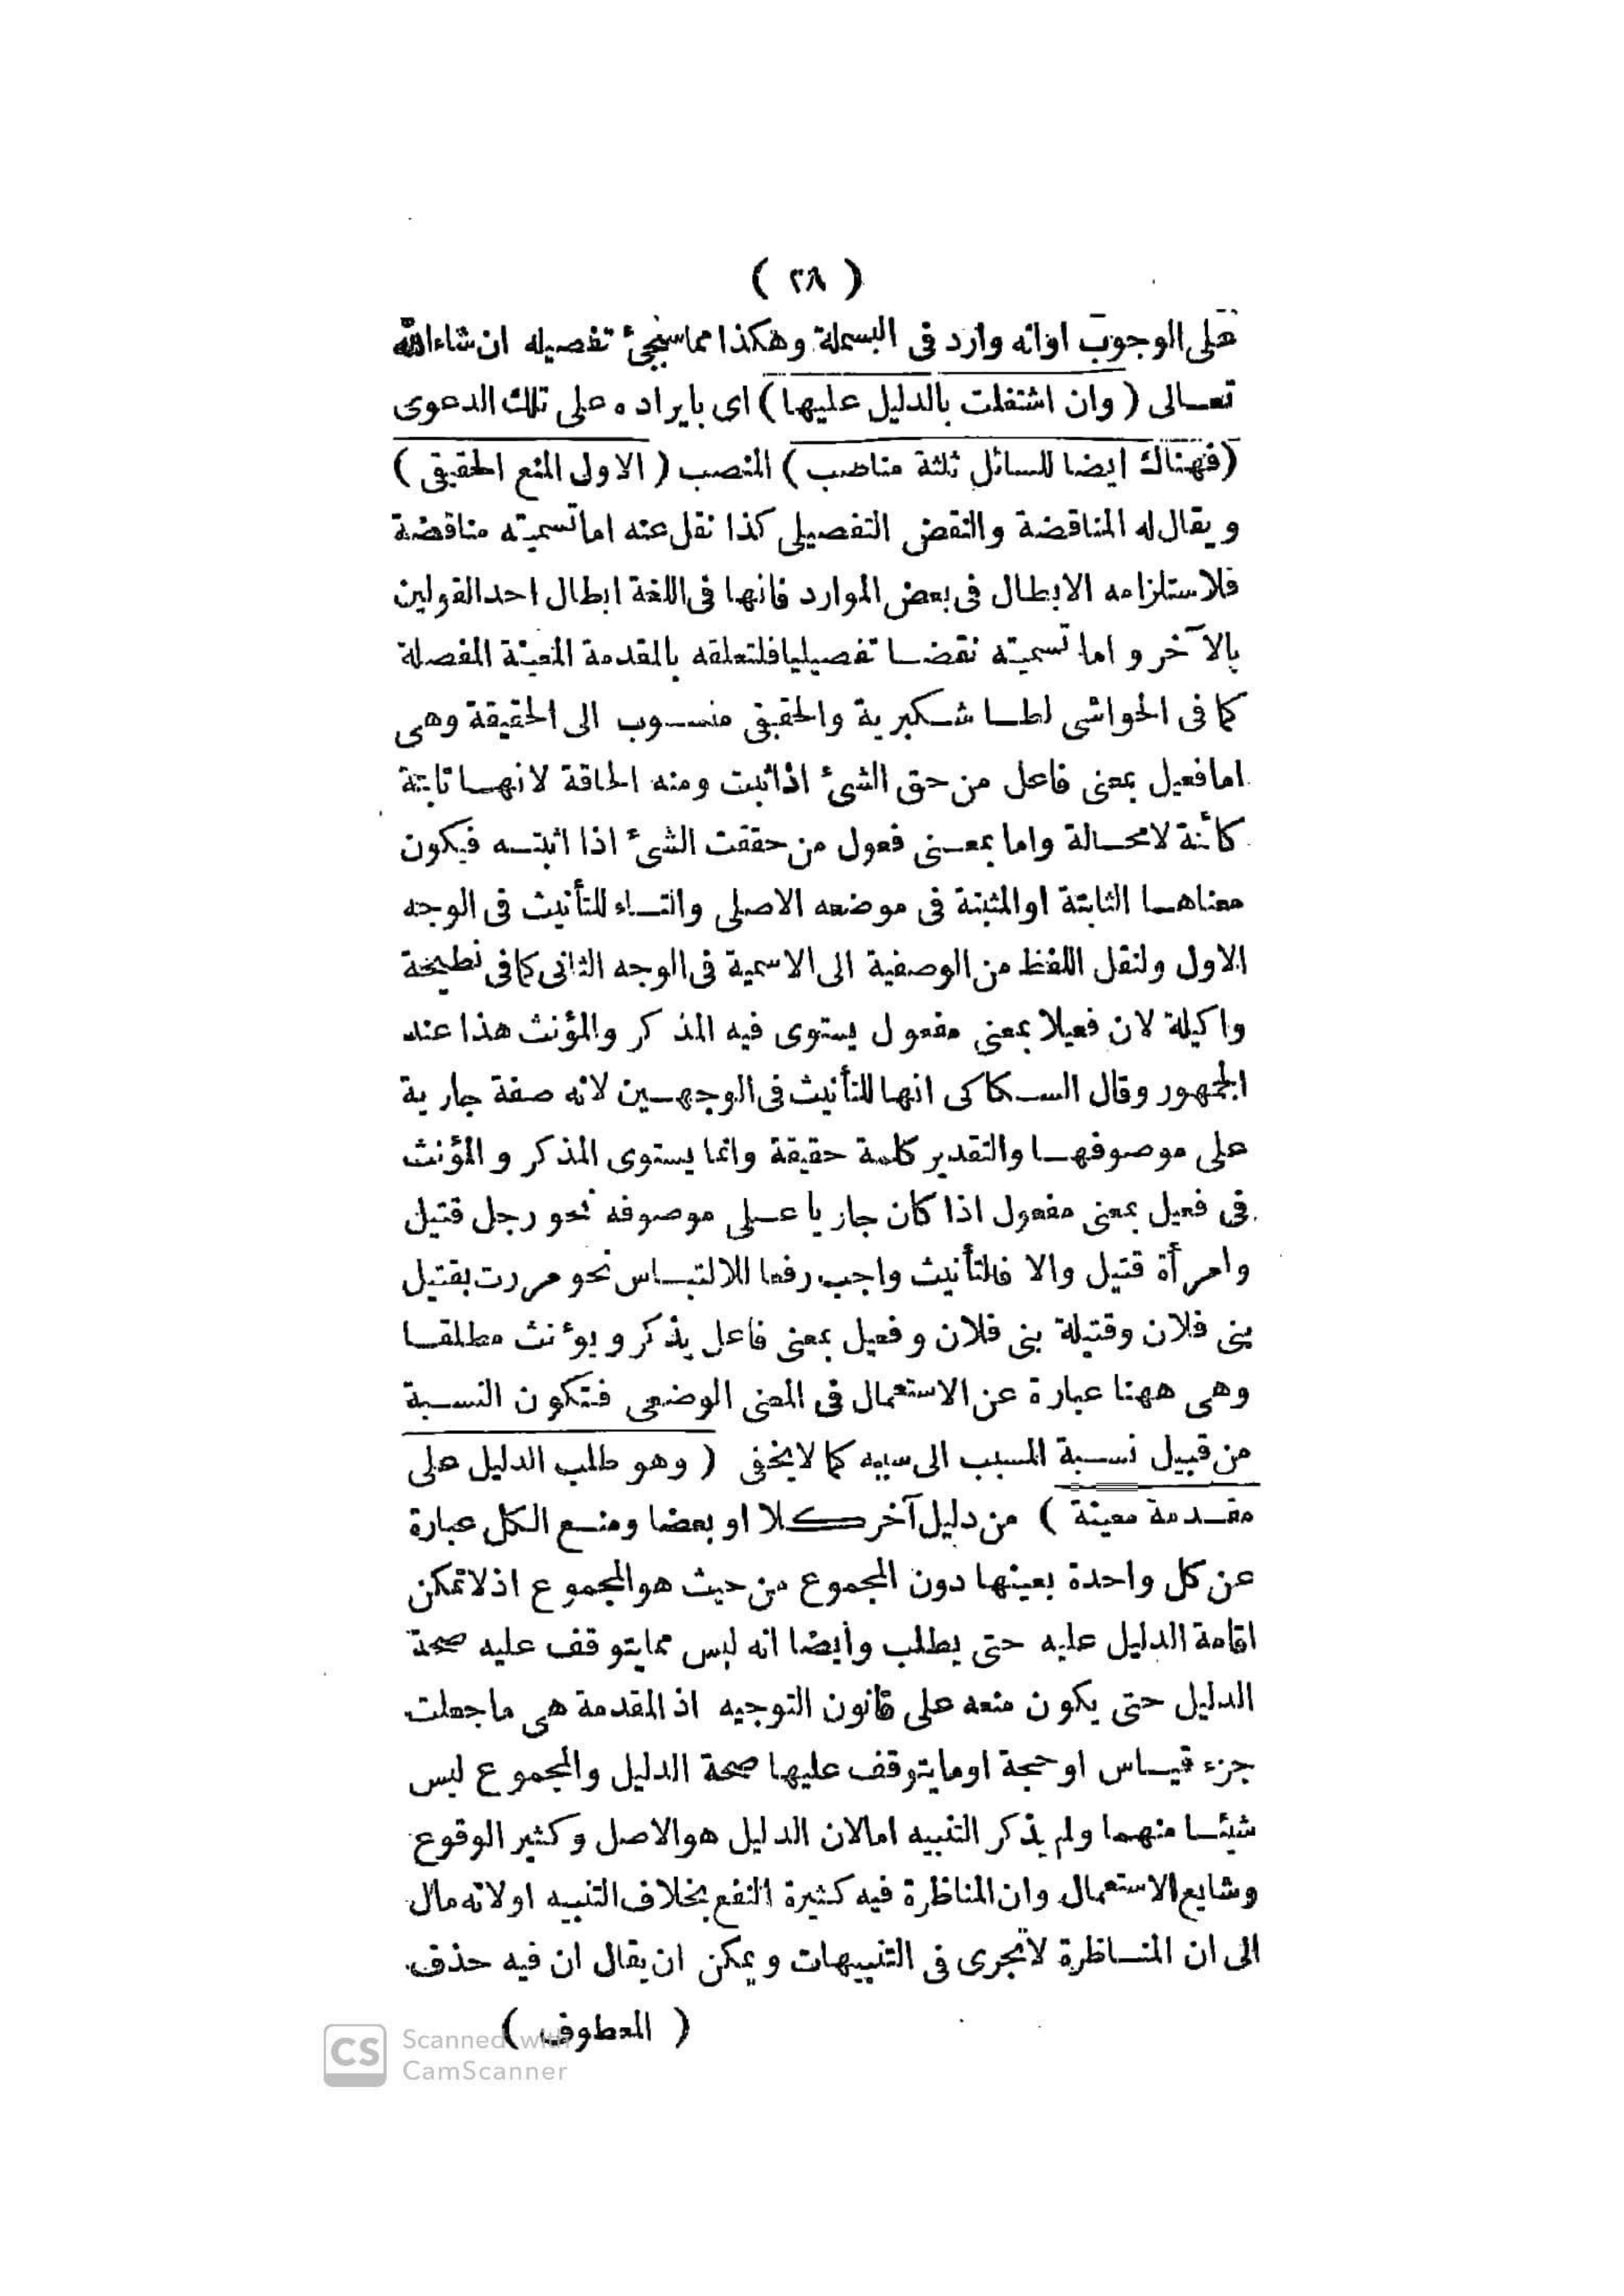 ( ٢٨ )
على الوجوب اوانه وارد فى البسملة وهكذا مماسيجئ تفصيله ان شاءالله
تعـالى ( وان اشتغلت بالدليل عليها ) اى بايراده على تلك الدعوى
( فهناك ايضا للسائل ثلثة مناصب ) المنصب ( الاولى المنع الحقيقى )
ويقال له المناقضة والنقض التفصيلى كذا نقل عنه اما تسميته مناقضة
فلاستلزامه الابطال فى بعض الموارد فانها فى اللغة ابطال احد القولين
بالآخر و اما تسميته نقضـا تفصيليا فلتعلقه بالمقدمة المعينة المفصلة
كما فى الحواشى لطـا شـكبرية والحقيقى منسـوب الى الحقيقة وهى
اما فعيل بمعنى فاعل من حق الشئ اذا ثبت ومنه الحاقة لانهـا ثابتة
كأئنة لامحـالة واما بمعـنى فعول من حققت الشئ اذا اثبتـه فيكون
معناهـا الثابتة اوالمثبتة فى موضعه الاصلى والتـاء للتأنيث فى الوجه
الاول ولنقل اللفظ من الوصفية الى الاسمية فى الوجه الثانى كمافى نطيحة
واكيلة لان فعيلا بمعنى مفعول يستوى فيه المذكر والمؤنث هذا عند
الجمهور وقال السـكاكى انها للتأنيث فى الوجهـين لانه صفة جارية
على موصوفهـا والتقدير كلمة حقيقة وانما يستوى المذكر و المؤنث
فى فعيل بمعنى مفعول اذا كان جاريا عـلى موصوفه نحو رجل قتيل
وامرأة قتيل والا فالتأنيث واجب رفعا للالتبـاس نحو مررت بقتيل
بنى فلان وقتيلة بنى فلان و فعيل بمعنى فاعل يذكر و يؤنث مطلقـا
وهى ههنا عبارة عن الاستعمال فى المعنى الوضعى فتكون النسـبة
من قبيل نسـبة المسبب الى سببه كما لايخفى ( وهو طلب الدليل على
مقـدمة معينة ) من دليل آخر كلا او بعضا ومنـع الكل عبارة
عن كل واحدة بعينها دون المجموع من حيث هوالمجموع اذلاتمكن
اقامة الدليل عليه حتى يطلب وأيضا انه ليس ممايتوقف عليه صحة
الدليل حتى يكون منعه على قانون التوجيه اذ المقدمة هى ماجعلت
جزء قيـاس اوحجة اومايتوقف عليها صحة الدليل والمجموع ليس
شيئـا منهما ولم يذكر التنبيه امالان الدليل هوالاصل وكثير الوقوع
وشايع الاستعمال وان المناظرة فيه كثيرة النفع بخلاف التنبيه اولانه مال
الى ان المنـاظرة لاتجرى فى التنبيهات ويمكن ان يقال ان فيه حذف
( المعطوف )
CS Scanned with
CamScanner